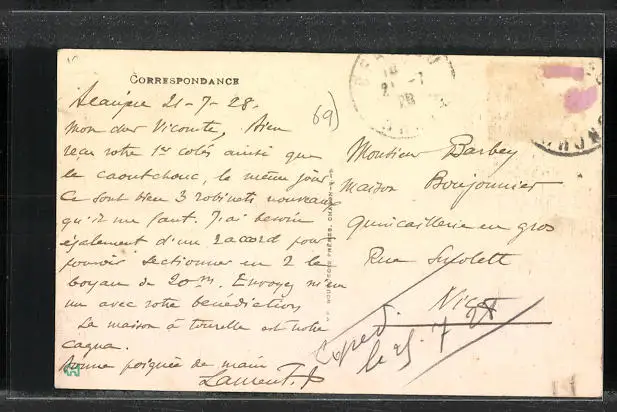 CORRESPONDANCE
21-7-28.
69)
Mon cher Vicomte, Bien
reçu votre 1er colis ainsi que
le caoutchouc, le même jour
Ce sont bien 3 robinets nouveaux
qu'il me faut. J'ai besoin
également d'un raccord pour
pouvoir sectionner en 2 le
boyau de 20m. Envoyez m'en
un avec votre bénédiction
La maison à tourelle est notre
cagna.
Bonne poignée de main
Laurent
Monsieur Barbey
Maison Bonjonnier
Quincaillerie en gros
Rue
Nice
le 25 7 28